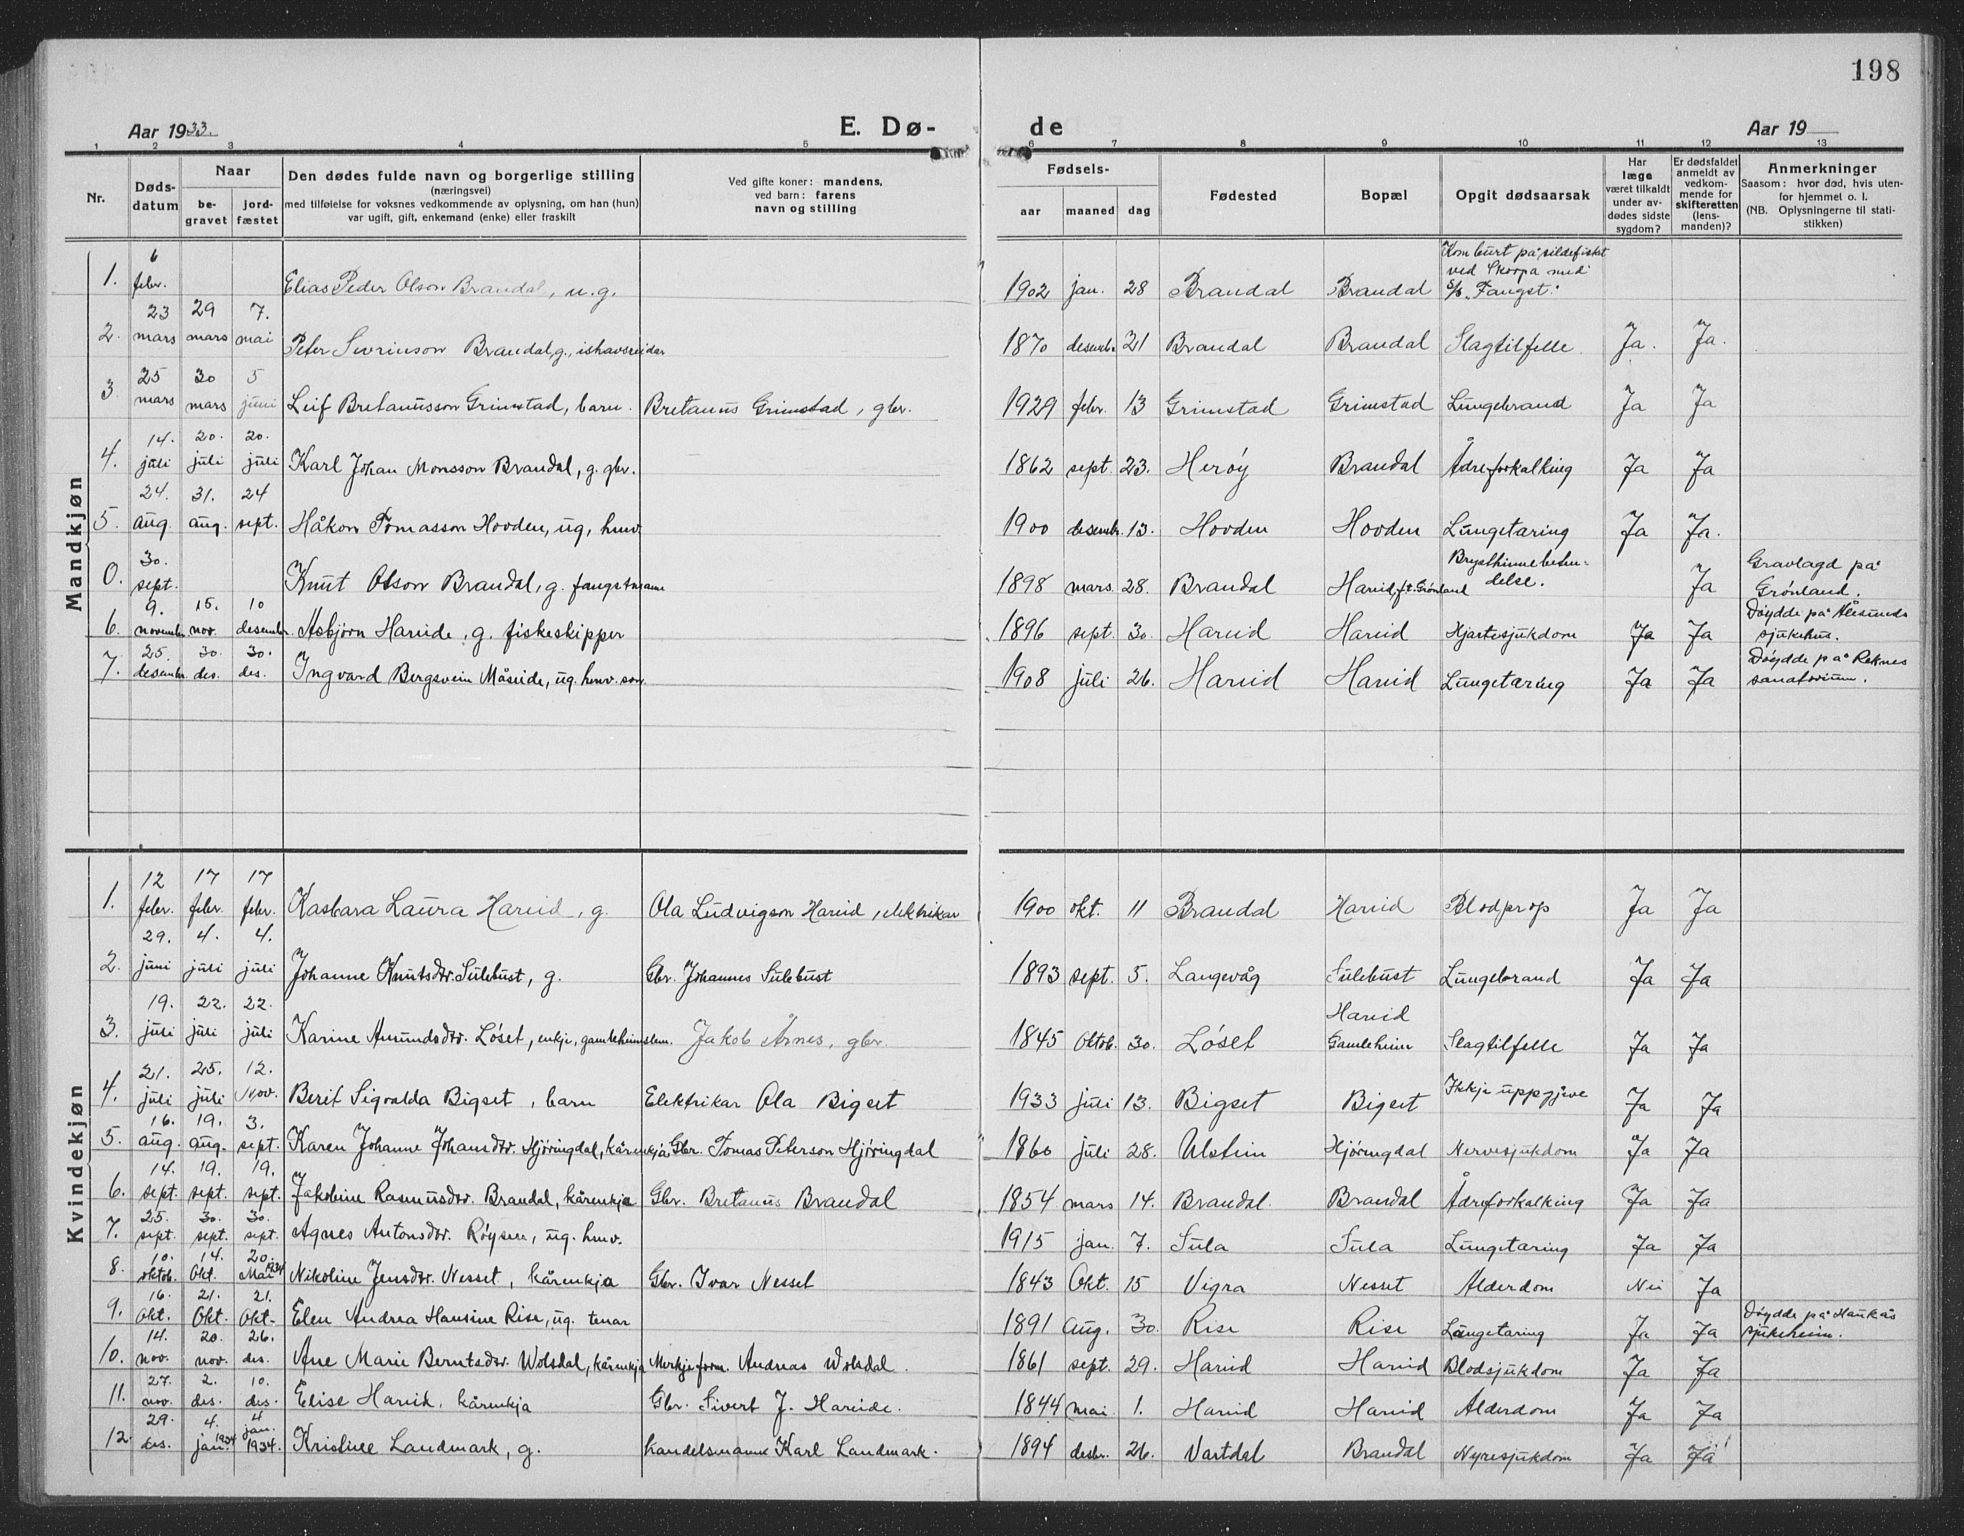 198
Aar 1933.
E. Dø-
de
Aar 19
1 2 3 4 5 6 7 8 9 10 11 12 13
Nr.
Døds-
datum
Naar
be-
gravet
jord-
fæstet
Den dødes fulde navn og borgerlige stilling
(næringsvei)
med tilføielse for voksnes vedkommende av oplysning, om han (hun)
var ugift, gift, enkemand (enke) eller fraskilt
Ved gifte koner: mandens,
ved barn: farens
navn og stilling
Fødsels-
aar maaned dag
Fødested
Bopæl
Opgit dødsaarsak
Har
læge
været tilkaldt
under av-
dødes sidste
sygdom?
Er dødsfaldet
anmeldt av
vedkom-
mende for
skifteretten
(lens-
manden)?
Anmerkninger
Saasom: hvor død, hvis uten-
for hjemmet o. l.
(NB. Oplysningerne til stati-
stikken)
Mandkjøn
1. 6 febr. Elias Peder Olson Brandal, u.g. 1902 jan. 28 Brandal Brandal Kom burt på sildefisket
ved Skorpa med
S/S „Fangst".
2. 23 mars 29 mars 7. mai Peter Sevrinson Brandal, g., ishavsreidar 1870 desembr. 21 Brandal Brandal Slagtilfelle Ja. Ja.
3. 25 mars 30 mars 5 juni Leif Bretanusson Grimstad, barn. Bretanus Grimstad, gbr. 1929 febr. 13 Grimstad Grimstad Lungebrand Ja Ja
4. 14. juli 20. juli 20. juli Karl Johan Monsson Brandal, g. gbr. 1862 sept. 23. Herøy Brandal Ådreforkalking Ja Ja
5. 24. aug. 31. aug. 24 sept. Håkon Tomasson Hovden, ug, hmv. 1900 desembr. 13. Hovden Hovden Lungetæring Ja Ja.
0. 30. sept. Knut Olson Brandal, g. fangstmann 1898 mars 28. Brandal Hareid, f.t. Grønland Brysthinnebeten-
delse. Ja Gravlagd på
Grønland.
6. 9. novembr. 15. nov. 10 desembr. Asbjørn Hareide, g. fiskeskipper 1896 sept. 30. Hareid Hareid Hjartesjukdom Ja Ja Døydde på Ålesunds
sjukehus.
7. 25. desembr. 30. des. 30. des. Ingvard Bergsvein Måseide, ug. hmv. son 1908 juli 26. Hareid Hareid Lungetæring Ja Ja Døydde på Reknes
sanatorium.
Kvindekjøn
1. 12 febr. 17 febr. 17 febr. Kasbara Laura Hareid, g. Ola Ludvigson Hareid, elektrikar 1900 okt. 11 Brandal Hareid Blodprop Ja Ja
2. 29. juni 4. juli 4. juli Johanne Knutsdtr. Sulebust, g. Gbr. Johannes Sulebust 1893 sept. 5. Langevåg Sulebust Lungebrand Ja Ja
3. 19. juli 22. juli 22. juli Karine Amundsdtr. Løset, enkje, gamleheimslem. Jakob Årnes, gbr. 1845 Oktob. 30. Løset Hareid
Gamleheim Slagtilfelle Ja Ja
4. 21. juli 25. juli 12. Nov. Berit Sigvalda Bigset, barn Elektrikar Ola Bigset 1933 juli 13. Bigset Bigset Ikkje uppgjeve Ja Ja
5. 16. aug. 19. aug. 3. sept. Karen Johanne Johansdtr. Hjøringdal, kårenkja Gbr. Tomas Peterson Hjøringdal 1860 juli 28. Ulstein Hjøringdal Nervesjukdom Ja Ja
6. 14. sept. 19. sept. 19. sept. Jakobine Rasmusdtr. Brandal, kårenkja Gbr. Bretanus Brandal 1854 mars 14. Brandal. Brandal Ådreforkalking Ja Ja
7. 25. sept. 30. sept. 30. sept. Agnes Antonsdtr. Røysen, ug. hmv. 1915 jan. 7. Sula Sula Lungetæring Ja Ja
8. 10. oktob. 14. Okt. 20. Mai 1934 Nikoline Jensdtr. Nesset, kårenkja Gbr. Ivar Nesset 1843 Okt. 15 Vigra Nesset Alderdom Nei Ja
9. 16. Okt. 21. Okt. 21. Okt. Elen Andrea Hansine Rise, ug. tenar 1891 Aug. 30. Rise Rise Lungetæring Ja Ja Døydde på Haukås
sjukeheim.
10. 14. nov. 20. nov. 26. des. Ane Marie Berntsdtr. Wolsdal, kårenkja Merkjeform. Andreas Wolsdal. 1861 sept. 29. Hareid Hareid Blodsjukdom Ja Ja
11. 27. nov. 2. des. 10. des. Elise Hareid, kårenkja Gbr. Sivert J. Hareide. 1844 mai 1. Hareid Hareid Alderdom Ja Ja
12. 29. des. 4. jan. 1934 4 jan. 1934. Kristine Landmark, g. handelsmann Karl Landmark. 1894 desbr. 26. Vartdal Brandal Nyresjukdom Ja Ja